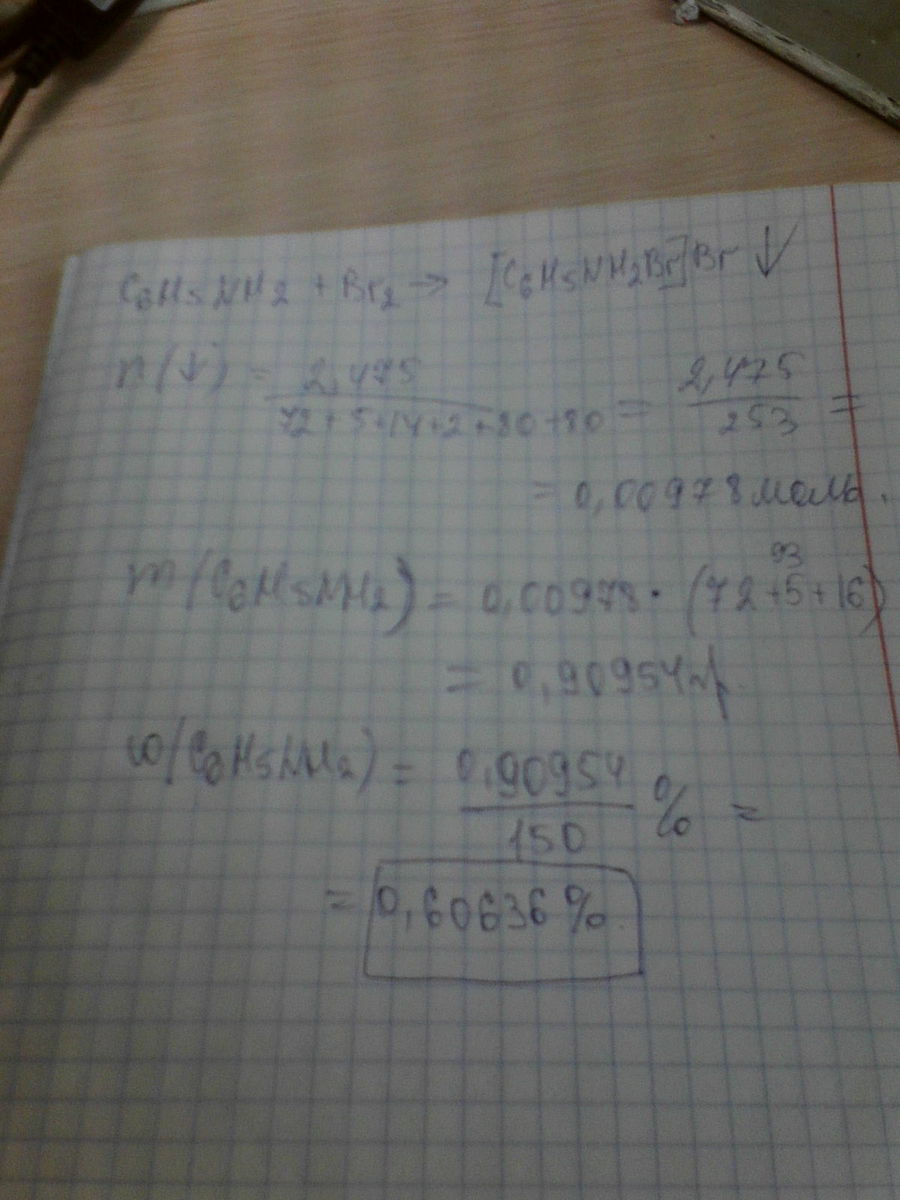 C₆H₅NH₂ + Br₂ → [C₆H₅NH₂Br]Br ↓
n(↓) = 2,475 / 72+5+14+2+80+80 = 2,475 / 253 =
= 0,00978 моль.
93
m(C₆H₅NH₂) = 0,00978 · (72+5+16)
= 0,90954 гр.
ω(C₆H₅NH₂) = 0,90954 / 150 % =
= 0,60636 %.